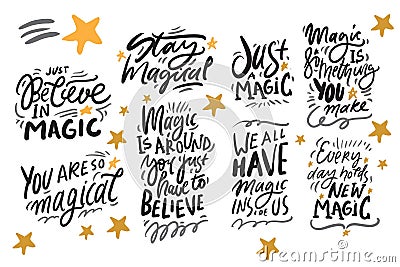 JUST
Believe
IN
MAGIC
Stay
Magical
JUST
A
MAGIC
Magic
IS
Something
YOU
make
YOU ARE SO
magical
Magic
IS AROUND,
you just
have to
BELIEVE
WE ALL
HAVE
Magic
INSIDE US
Every
day holds
NEW
MAGIC